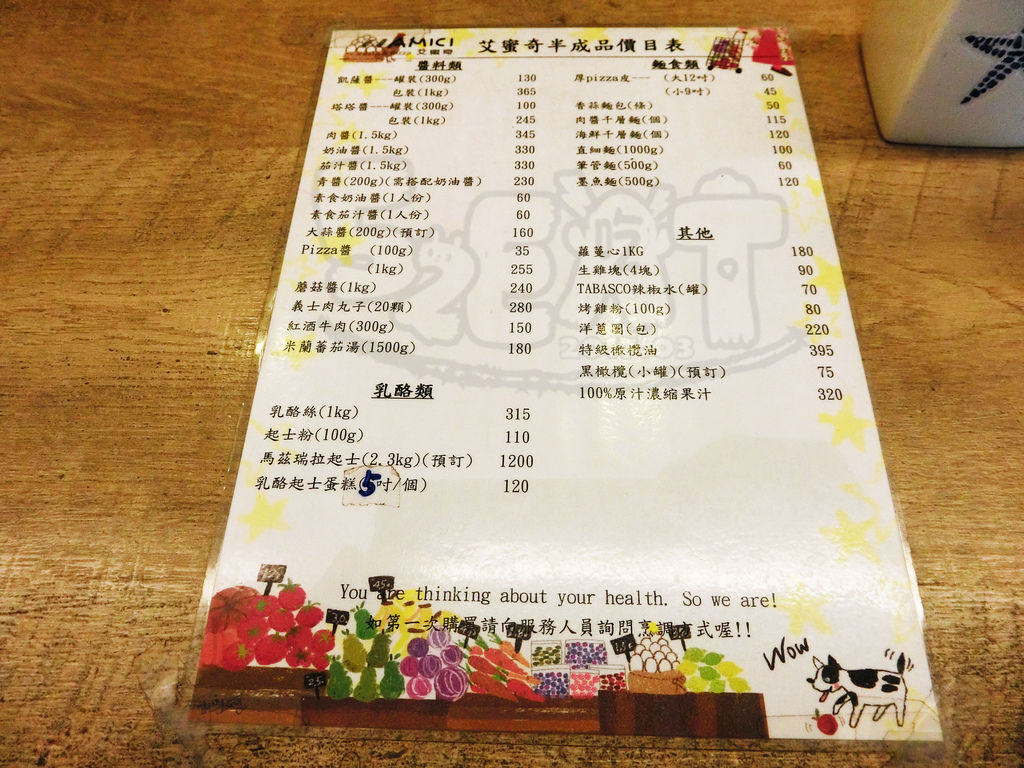 AMICI
艾蜜奇
艾蜜奇半成品價目表
醬料類
凱薩醬---罐裝(300g) 130
包裝(1kg) 365
塔塔醬---罐裝(300g) 100
包裝(1kg) 245
肉醬(1.5kg) 345
奶油醬(1.5kg) 330
茄汁醬(1.5kg) 330
青醬(200g)(需搭配奶油醬) 230
素食奶油醬(1人份) 60
素食茄汁醬(1人份) 60
大蒜醬(200g)(預訂) 160
Pizza醬 (100g) 35
(1kg) 255
蘑菇醬(1kg) 240
義士肉丸子(20顆) 280
紅酒牛肉(300g) 150
米蘭蕃茄湯(1500g) 180
乳酪類
乳酪絲(1kg) 315
起士粉(100g) 110
馬茲瑞拉起士(2.3kg)(預訂) 1200
乳酪起士蛋糕(5吋/個) 120
麵食類
厚pizza皮--- (大12吋) 60
(小9吋) 45
香蒜麵包(條) 50
肉醬千層麵(個) 115
海鮮千層麵(個) 120
直細麵(1000g) 100
筆管麵(500g) 60
墨魚麵(500g) 120
其他
蘿蔓心1KG 180
生雞塊(4塊) 90
TABASCO辣椒水(罐) 70
烤雞粉(100g) 80
洋蔥圈(包) 220
特級橄欖油 395
黑橄欖(小罐)(預訂) 75
100%原汁濃縮果汁 320
You are thinking about your health. So we are!
如第一次購買請向服務人員詢問烹調方式喔!!
Wow